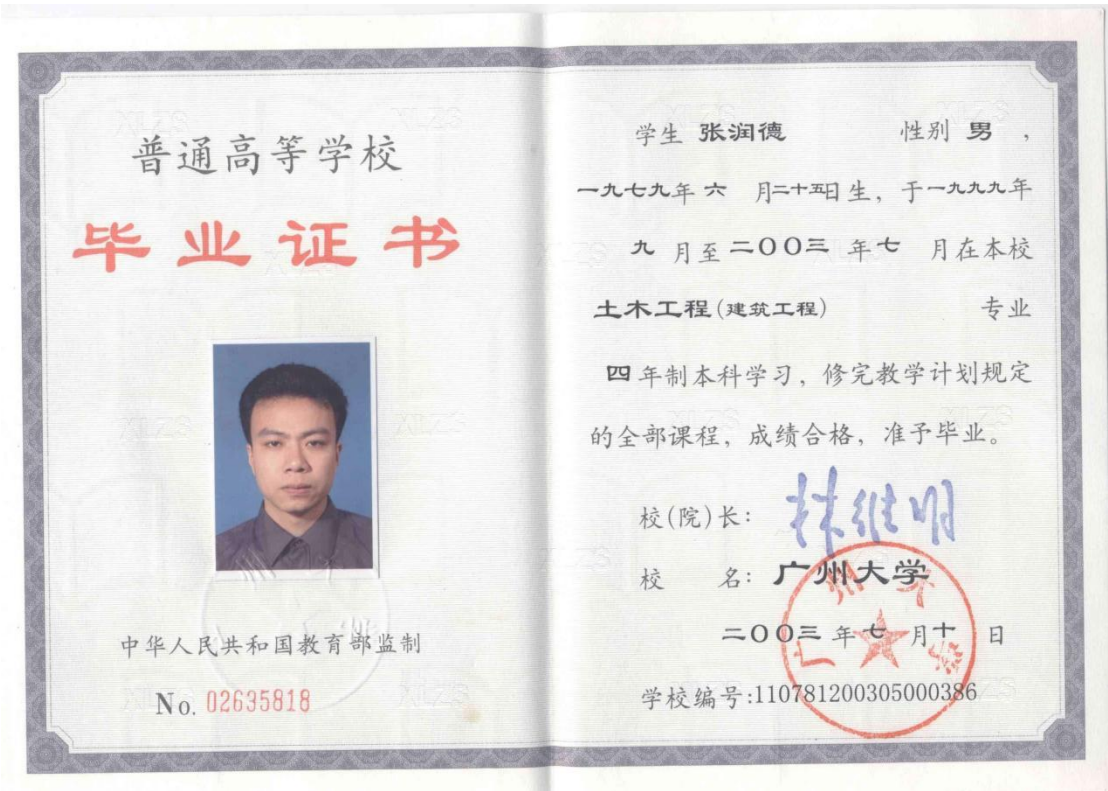 普通高等学校
毕业证书
中华人民共和国教育部监制
No. 02635818
学生 张润德 性别 男，
一九七九年 六 月二十五日生，于一九九九年
九 月至 二〇〇三 年 七 月在本校
土木工程(建筑工程) 专业
四 年制本科学习，修完教学计划规定
的全部课程，成绩合格，准予毕业。
校(院)长：林维明
校 名：广州大学
二〇〇三 年 七 月 十 日
学校编号:110781200305000386
XLZS
广州大学